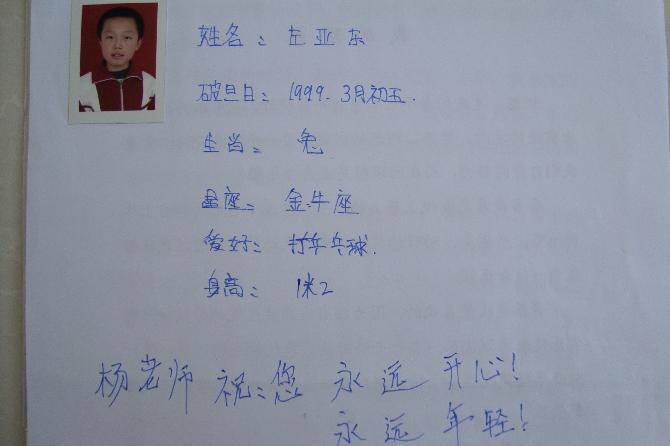 姓名:左亚东
破旦日:1999.3月初五.
生肖:兔
星座:金牛座
爱好:打乒乓球.
身高:1米2
杨老师祝:您 永远开心!
永远年轻!